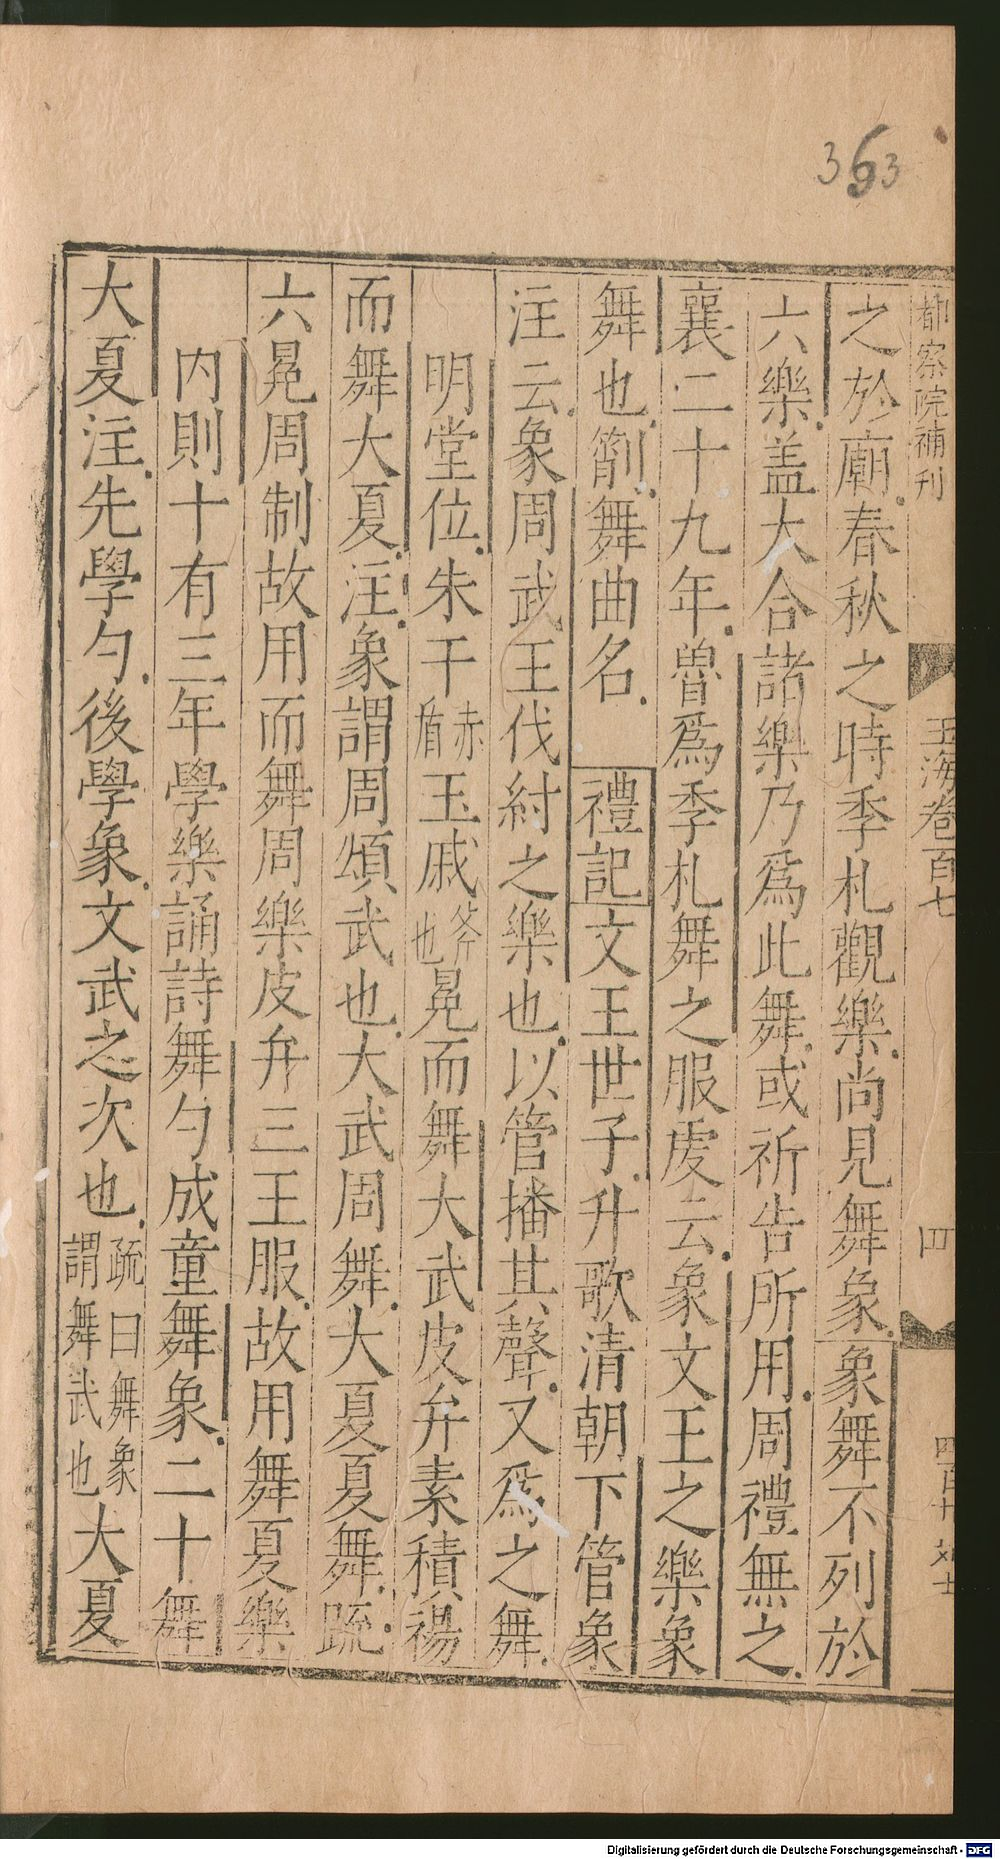 363
都察院補刊
玉海卷百七
四
之於廟春秋之時季札觀樂尚見舞象象舞不列於
六樂盖大合諸樂乃爲此舞或祈告所用周禮無之
襄二十九年魯爲季札舞之服虔云象文王之樂象
舞也箾舞曲名 禮記文王世子升歌清朝下管象
注云象周武王伐紂之樂也以管播其聲又爲之舞
明堂位朱干赤盾玉戚斧也冕而舞大武皮弁素積裼
而舞大夏注象謂周頌武也大武周舞大夏夏舞疏
六冕周制故用而舞周樂皮弁三王服故用舞夏樂
内則十有三年學樂誦詩舞勺成童舞象二十年舞
大夏注先學勺後學象文武之次也疏曰舞象謂舞武也大夏
Digitalisierung gefördert durch die Deutsche Forschungsgemeinschaft - DFG